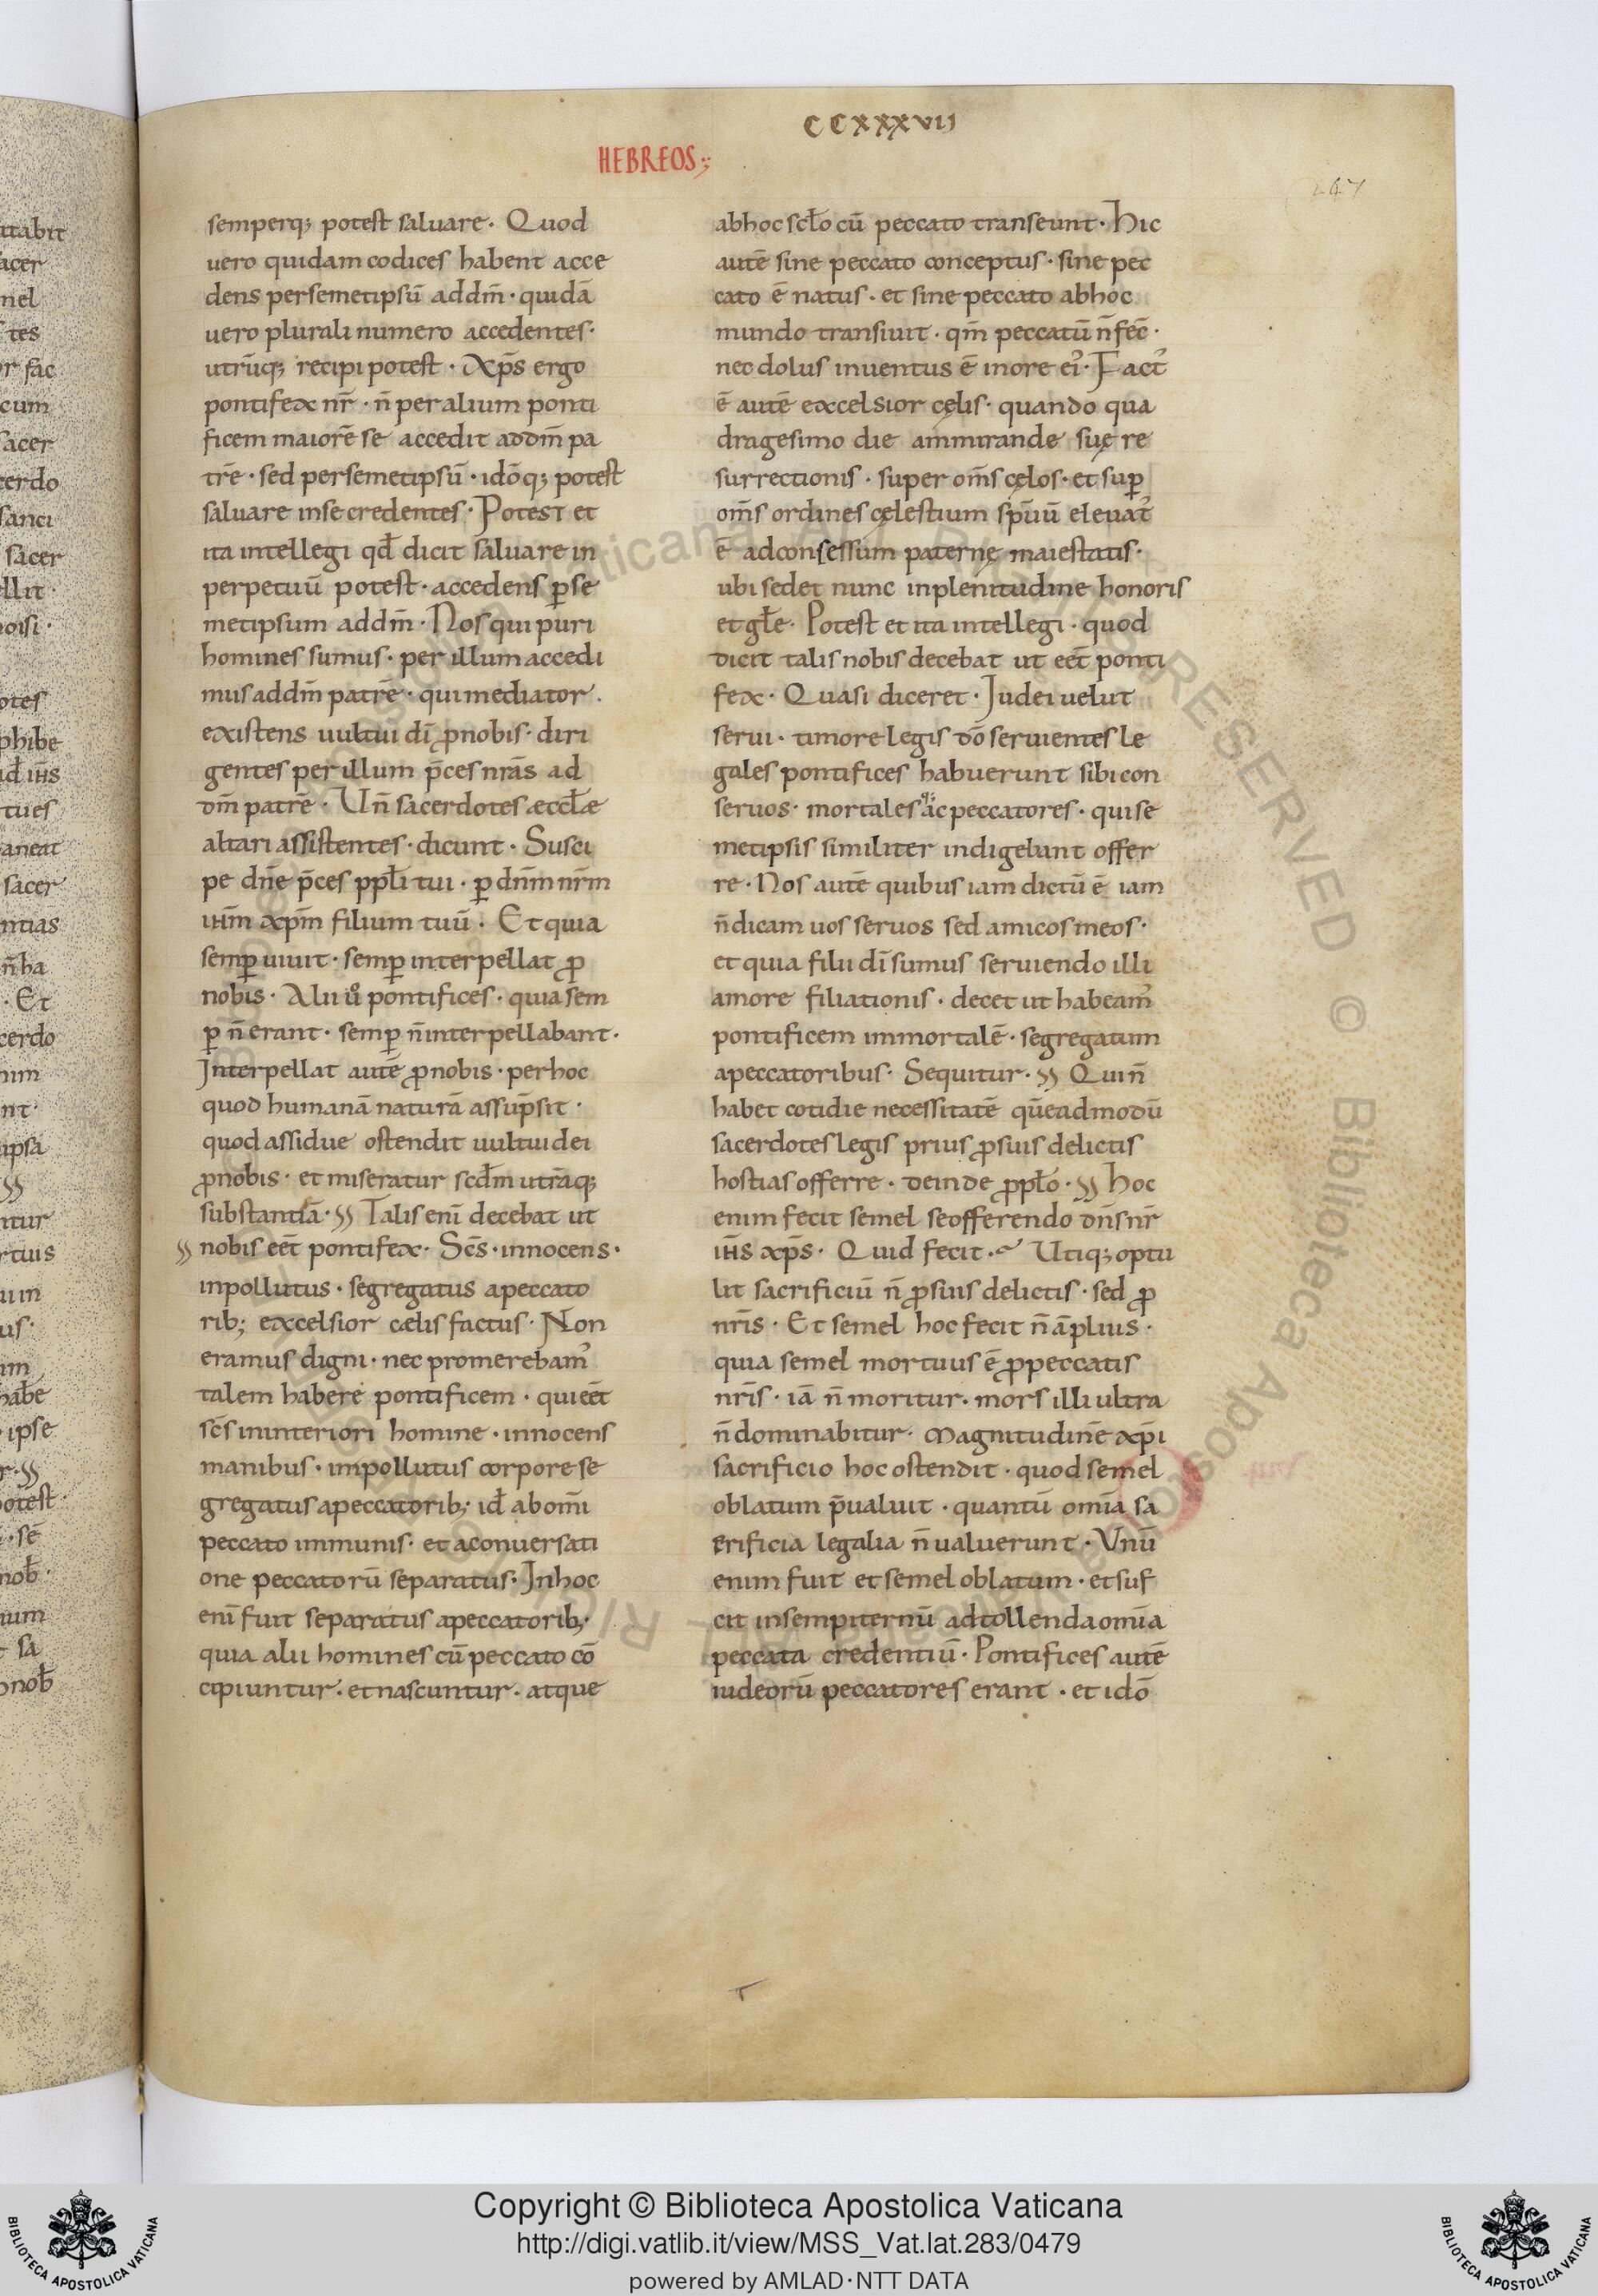 CCXXXVII
HEBREOS
247
semperq; potest saluare. Quod
uero quidam codices habent acce
dens persemetipsū addm̄. quidā
uero plurali numero accedentes.
utrūq; recipi potest. Xp̄s ergo
pontifex nr̄. n̄ peralium ponti
ficem maiorē se accedit addm̄ pa
trē. sed persemetipsū. idōq; potest
saluare inse credentes. Potest et
ita intellegi qd̄ dicit saluare in
perpetuū potest. accedens ꝑse
metipsum addm̄. Nos qui puri
homines sumus. per illum accedi
mus addm̄ patrē. qui mediator.
existens uultui dī ꝓnobis. diri
gentes per illum p̄ces nrās ad
dm̄ patrē. Un̄ sacerdotes æccl̄æ
altari assistentes. dicunt. Susci
pe dn̄e p̄ces ppl̄i tui. ꝑ dnm̄ nrm̄
ihm̄ xpm̄ filium tuū. Et quia
semꝑ uiuit. semꝑ interpellat ꝓ
nobis. Alii ůo pontifices. quia sem
ꝑ n̄ erant. semꝑ n̄ interpellabant.
Interpellat autē ꝓnobis. perhoc
quod humanā naturā assūpsit.
quod assidue ostendit uultui dei
ꝓnobis. et miseratur scdm̄ utrāq;
substantiā. Talis enī decebat ut
nobis eēt pontifex. Scs̄. innocens.
inpollutus. segregatus apeccato
rib; excelsior cælis factus. Non
eramus digni. nec promerebam᾽
talem habere pontificem. qui eēt
scs̄ ininteriori homine. innocens
manibus. impollutus corpore se
gregatus apeccatorib; id̄ abomī
peccato immunis. et aconuersati
one peccatorū separatus. Inhoc
enī fuit separatus apeccatorib;
quia alii homines cū peccato cō
cipiuntur. et nascuntur. atque
abhoc scl̄o cū peccato transeunt. Hic
autē sine peccato conceptus. sine pec
cato ē natus. et sine peccato abhoc
mundo transiuit. qm̄ peccatū n̄ fec̄.
nec dolus inuentus ē inore ei᾽. Fact᾽
ē autē excelsior cęlis. quando qua
dragesimo die ammirande suę re
surrectionis. super om̄s cęlos. et suꝑ
om̄s ordines cęlestium sp̄uū eleuat᾽
ē adconsessum paternę maiestatis.
ubi sedet nunc inplenitudine honoris
et gl̄e. Potest et ita intellegi. quod
dicit talis nobis decebat ut eēt ponti
fex. Quasi diceret. Iudei uelut
serui. timore legis dō seruientes le
gales pontifices habuerunt sibi con
seruos. mortales ac peccatores. qui se
metipsis similiter indigebant offer
re. Nos autē quibus iam dictū ē iam
n̄ dicam uos seruos sed amicos meos.
et quia filii dī sumus seruiendo illi
amore filiationis. decet ut habeam᾽
pontificem immortalē. segregatum
apeccatoribus. Sequitur. Qui n̄
habet cotidie necessitatē quēadmodū
sacerdotes legis prius ꝓsuis delictis
hostias offerre. deinde ꝓpl̄o. Hoc
enim fecit semel seofferendo dn̄s nr̄
ihs̄ xp̄s. Quid fecit. Utiq; optu
lit sacrificiū n̄ ꝓsuis delictis. sed ꝓ
nrīs. Et semel hoc fecit n̄ āplius.
quia semel mortuus ē ꝓpeccatis
nrīs. iā n̄ moritur. mors illi ultra
n̄ dominabitur. Magnitudinē xp̄i
sacrificio hoc ostendit. quod semel
oblatum p̄ualuit. quantū omīa sa
crificia legalia n̄ ualuerunt. Unū
enim fuit et semel oblatum. et suf
cit insempiternū adtollenda omīa
peccata credentiū. Pontifices autē
iudeorū peccatores erant. et idō
Copyright © Biblioteca Apostolica Vaticana
http://digi.vatlib.it/view/MSS_Vat.lat.283/0479
powered by AMLAD·NTT DATA
BIBLIOTECA APOSTOLICA VATICANA
BIBLIOTECA APOSTOLICA VATICANA